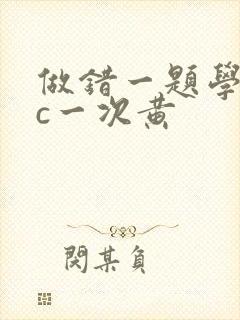 做錯一題學
c一次黃
閱某負